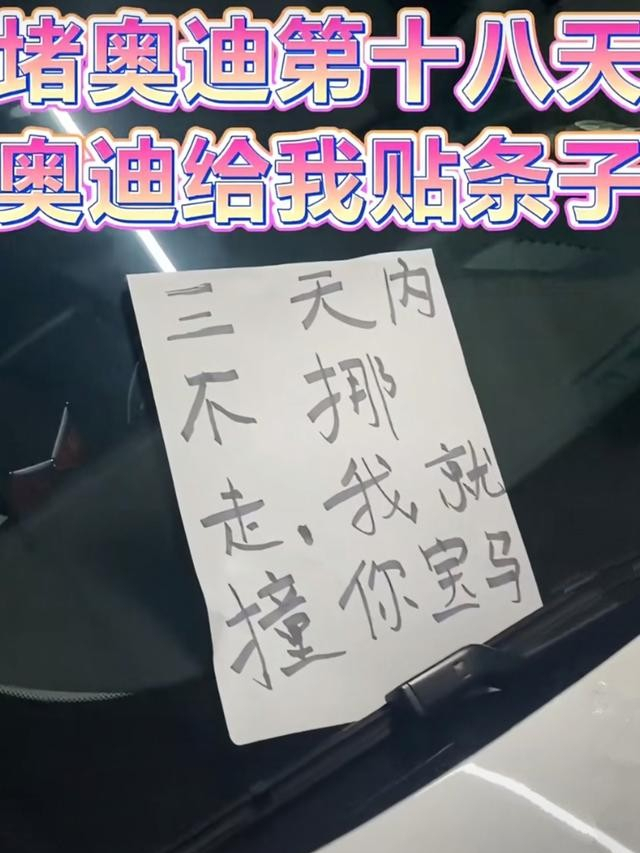 堵奥迪第十八天
奥迪给我贴条子
三天内
不挪
走.我就
撞你宝马